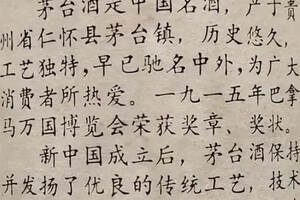 茅台酒是中国名酒，产于贵
州省仁怀县茅台镇，历史悠久，
工艺独特，早已驰名中外，为广大
消费者所热爱。一九一五年巴拿
马万国博览会荣获奖章、奖状。
新中国成立后，茅台酒保持
并发扬了优良的传统工艺，技术